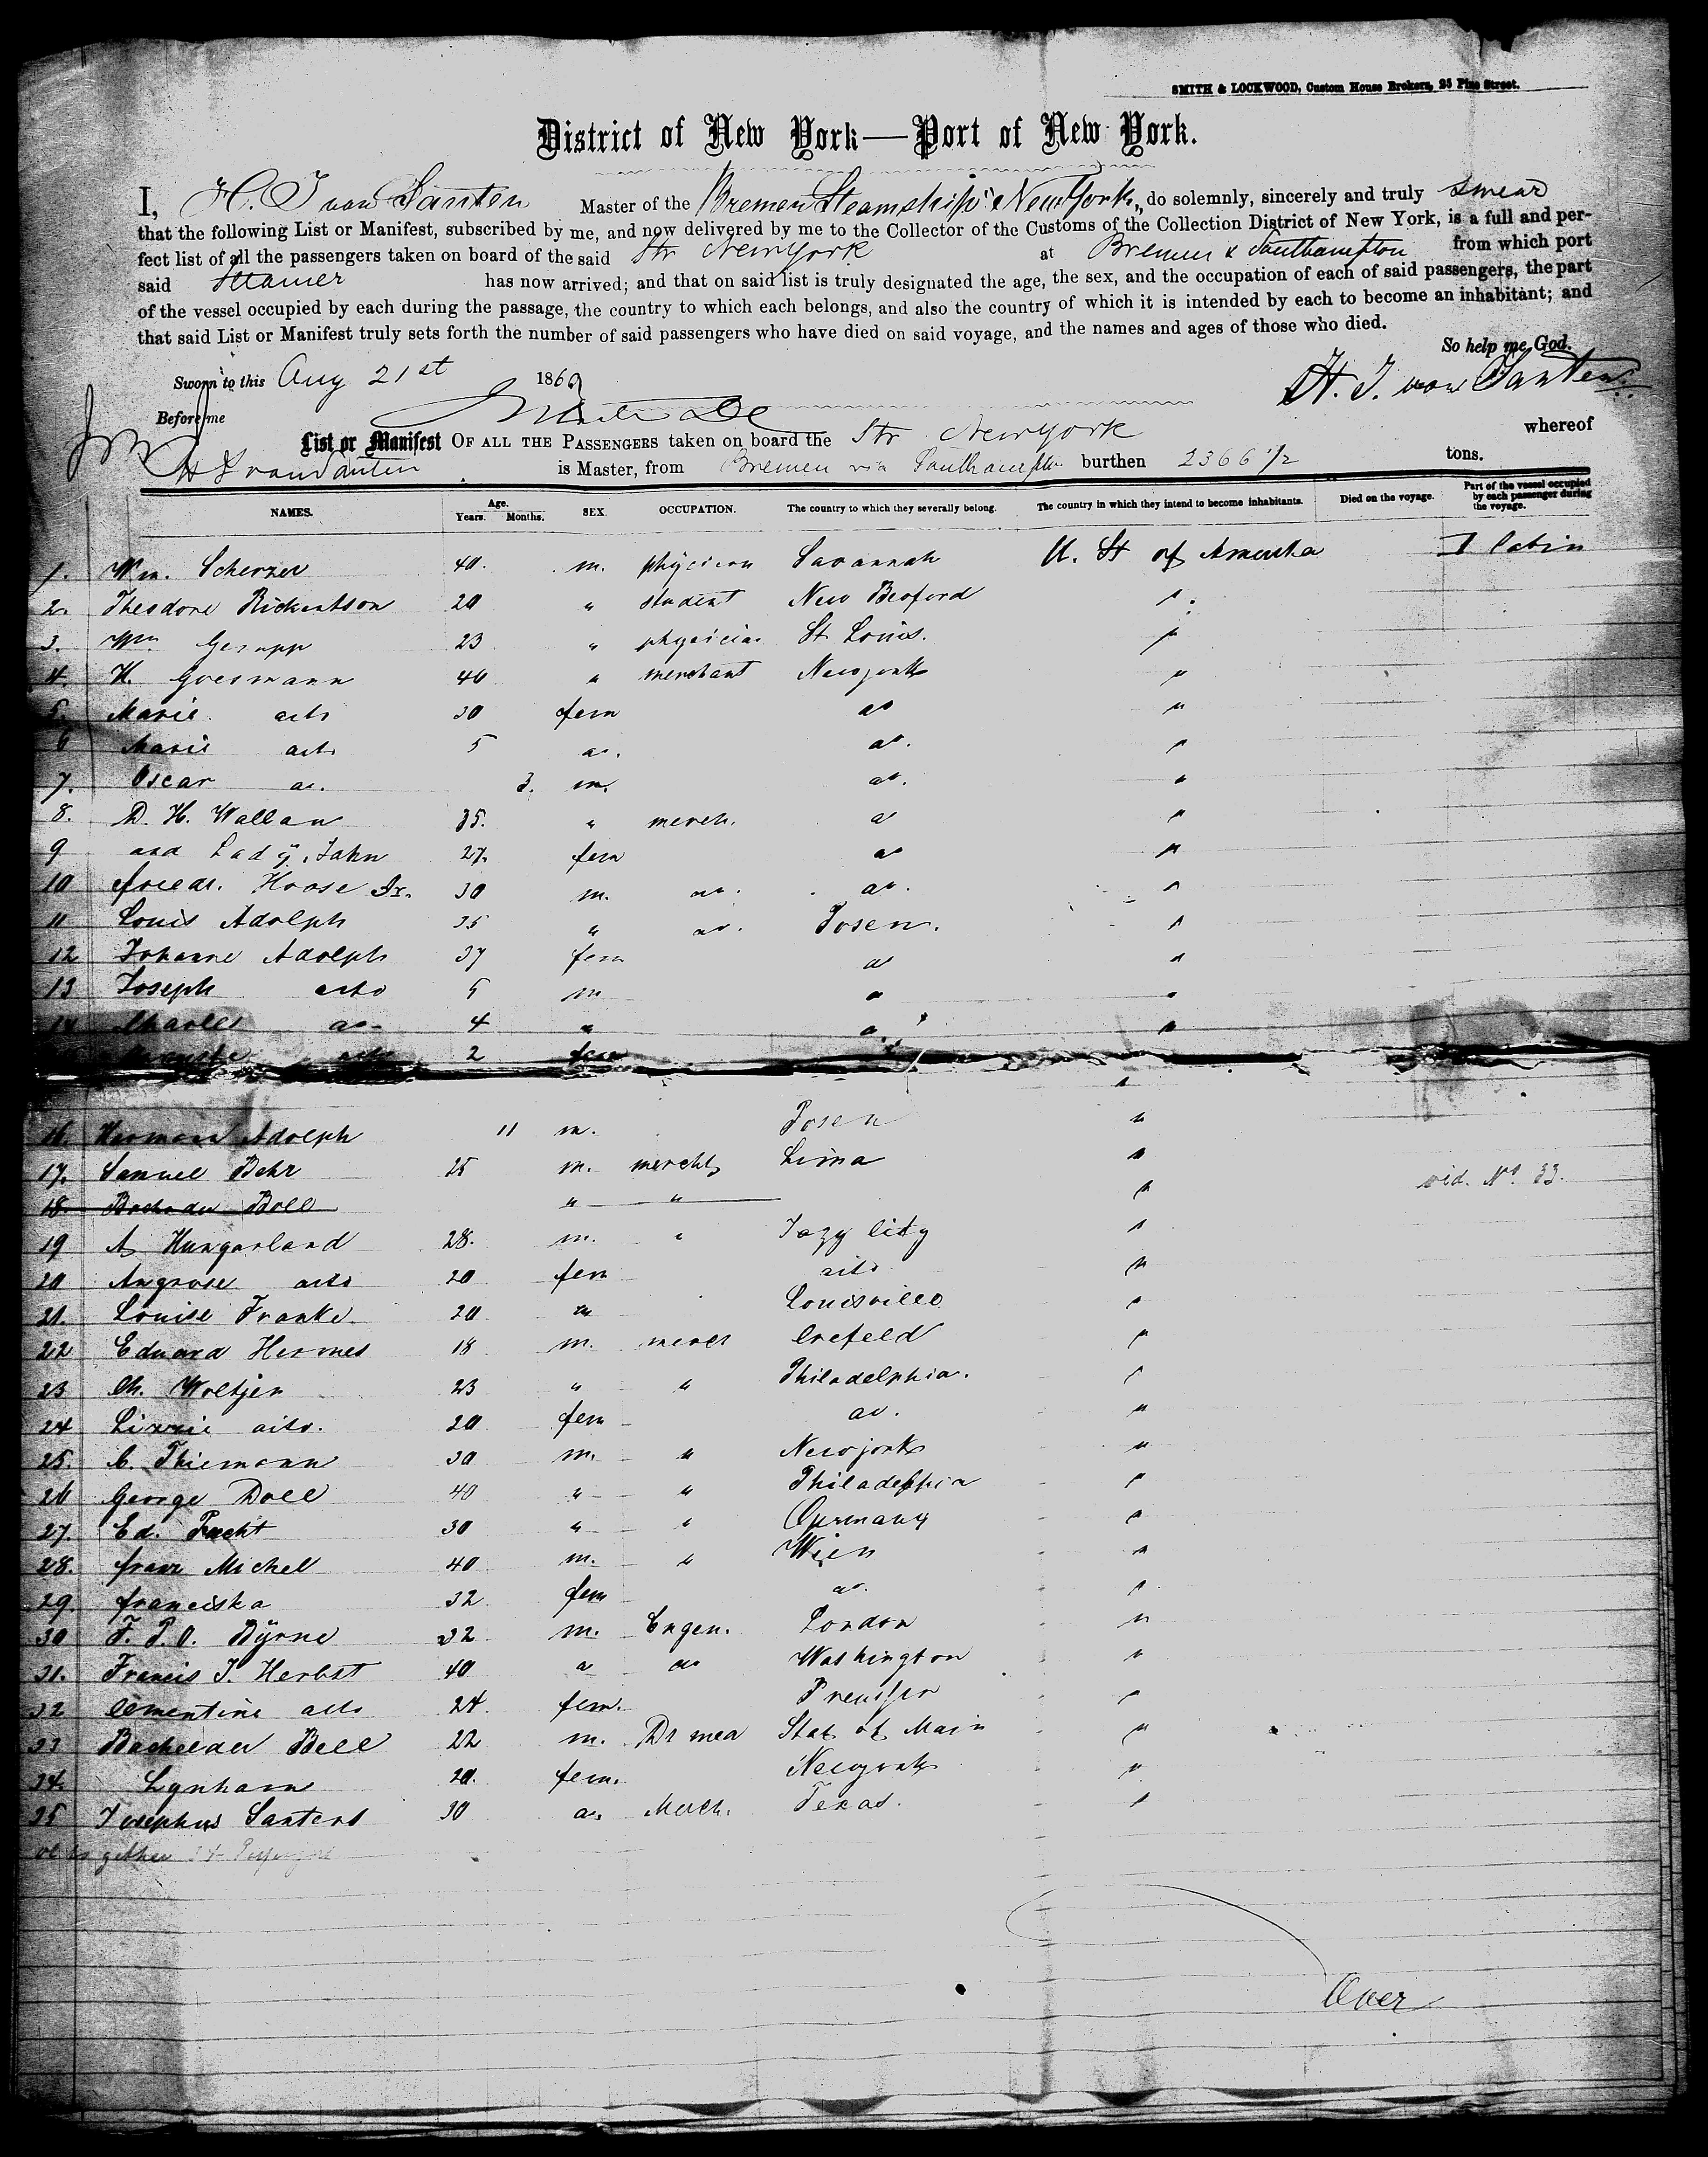 SMITH & LOCKWOOD, Custom House Brokers, 25 Pine Street.
District of New York—Port of New York.
I, H. J van Santen Master of the Bremen Steamship "New York" do solemnly, sincerely and truly swear
that the following List or Manifest, subscribed by me, and now delivered by me to the Collector of the Customs of the Collection District of New York, is a full and per-
fect list of all the passengers taken on board of the said Str New York at Bremen & Southampton from which port
said Steamer has now arrived; and that on said list is truly designated the age, the sex, and the occupation of each of said passengers, the part
of the vessel occupied by each during the passage, the country to which each belongs, and also the country of which it is intended by each to become an inhabitant; and
that said List or Manifest truly sets forth the number of said passengers who have died on said voyage, and the names and ages of those who died.
So help me God.
Sworn to this Aug 21st 1869 H. J. van Santen
Before me
List or Manifest OF ALL THE PASSENGERS taken on board the Str New York whereof
H J van Santen is Master, from Bremen via Southampton burthen 2366 1/2 tons.
NAMES. Age. Years. Months. SEX. OCCUPATION. The country to which they severally belong. The country in which they intend to become inhabitants. Died on the voyage. Part of the vessel occupied by each passenger during the voyage.
1. Wm. Scherzer 40. m. physician Savannah U. St of America I Cabin
2. Theodore Rickentson 20 " student New Bedford "
3. Wm Gerupp 23 " physician St Louis. "
4. H. Goesmann 46 " merchant Newyork "
5. Marie dito 30 fem do "
6 Marie dito 5 do. do. "
7. Oscar do. 3. m. do. "
8. D. H. Wallan 35. " merch. do "
9 and Lady, 27. fem do "
10 Friedr. Hoose Jr. 30 m. do. do. "
11 Louis Adolph 35 " do. Posen. "
12 Johanne Adolph 37 fem do "
13 Joseph dito 5 m " "
14 Charles do 4 " " "
dito 2 fem
16. Hermann Adolph 11 m. Posen "
17. Samuel Behr 25 m. mercht Lima "
18. Boll " " " vid. No. 33.
19 A Hungarland 28. m. " Jazy City "
20 Angrose dito 20 fem dito "
21. Louise Franke. 20 " Louisville "
22 Eduard Hermes 18 m. merch Crefeld "
23 Ch. Woltjen 23 " " Philadelphia. "
24 Lizzie dito. 20 fem do. "
25. C. Thiemann 30 m. " Newjork "
26 George Doll 40 " " Philadelphia "
27. Ed. Pracht 30 " " Germany "
28. Franz Michel 40 m. " Wien "
29. Franciska 32 fem do. "
30 F. P. O. Byrne 32 m. Engen. London "
31. Francis J. Herbst 40 " do Washington "
32 Clementine dito 24. fem. Preussen "
33 Bachelder Bell 22 m. Dr med Stat of Main "
34. Lynham 20. fem. Newyork "
35 Josephus Santers 30 do. Merch. Texas. "
al to gether 34 Passengers
Over